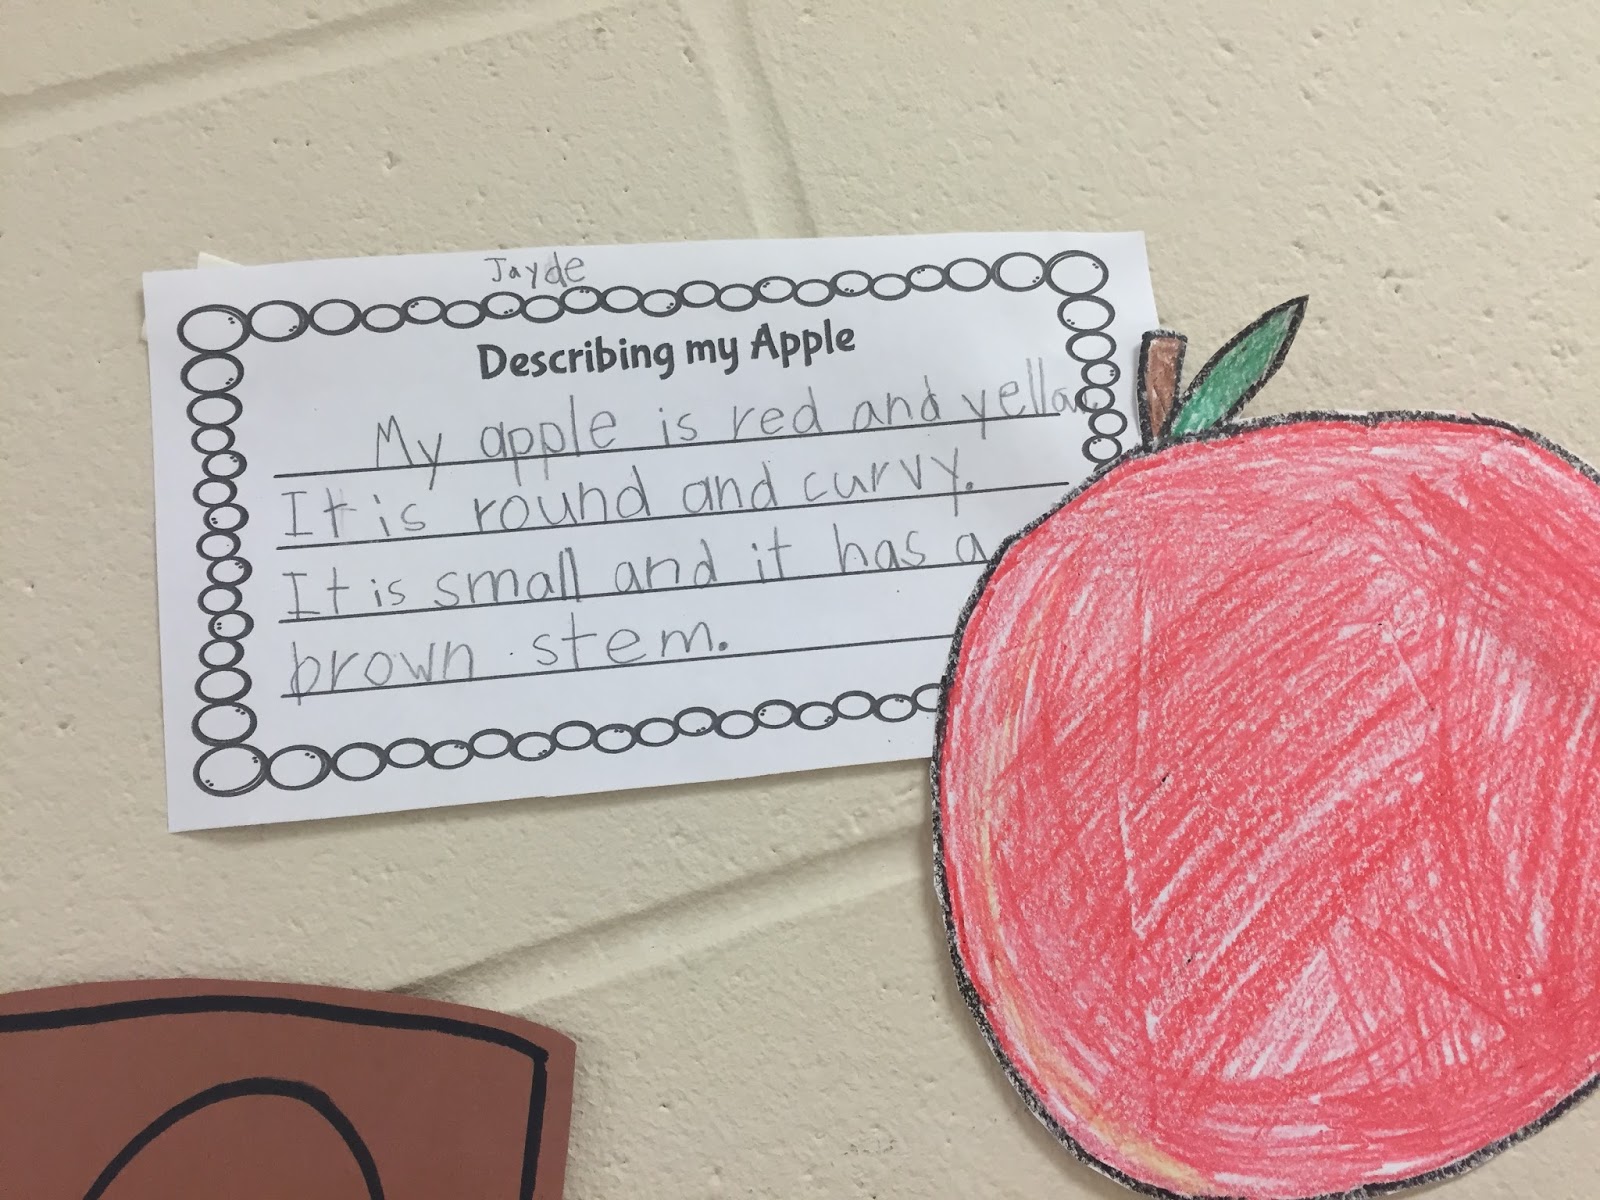 Jayde
Describing my Apple
My apple is red and yellow
It is round and curvy.
It is small and it has a
brown stem.